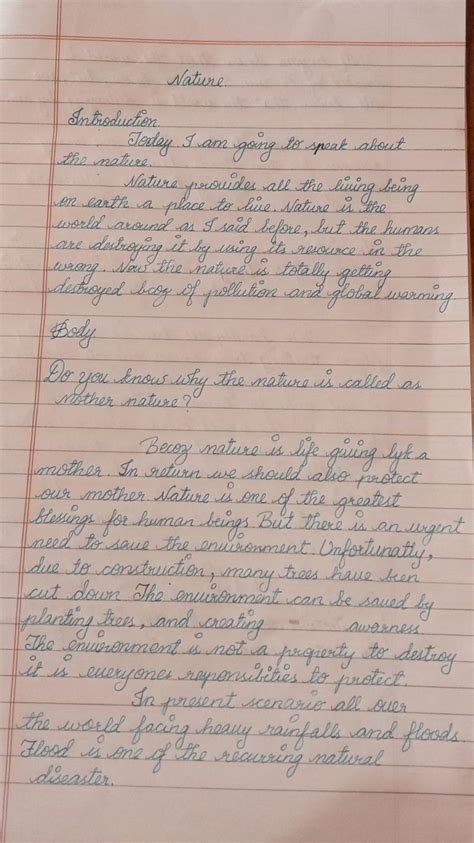 Nature
Introduction
Today I am going to speak about
the nature.
Nature provides all the living being
on earth a place to live. Nature is the
world around as I said before, but the humans
are destroying it by using its resource in the
wrong. Now the nature is totally getting
destroyed bcoz of pollution and global warming
Body
Do you know why the nature is called as
Mother nature?
Becoz nature is life giving lyk a
mother. In return we should also protect
our mother. Nature is one of the greatest
blessings for human beings. But there is an urgent
need to save the environment. Unfortunatly,
due to construction, many trees have been
cut down. The environment can be saved by
planting trees, and creating awarness
The environment is not a property to destroy
it is everyones reponsibities to protect.
In present scenario all over
the world facing heavy rainfalls and floods.
Flood is one of the recurring natural
disaster.